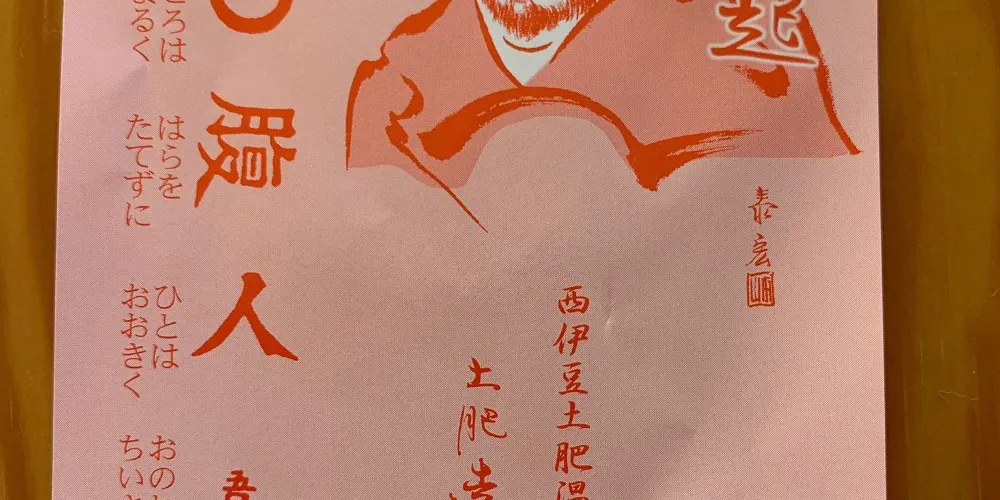 起
泰宏
西伊豆土肥温
土肥
腹 人 吾
ろは はらを ひとは おの
るく たてずに おおきく ちい